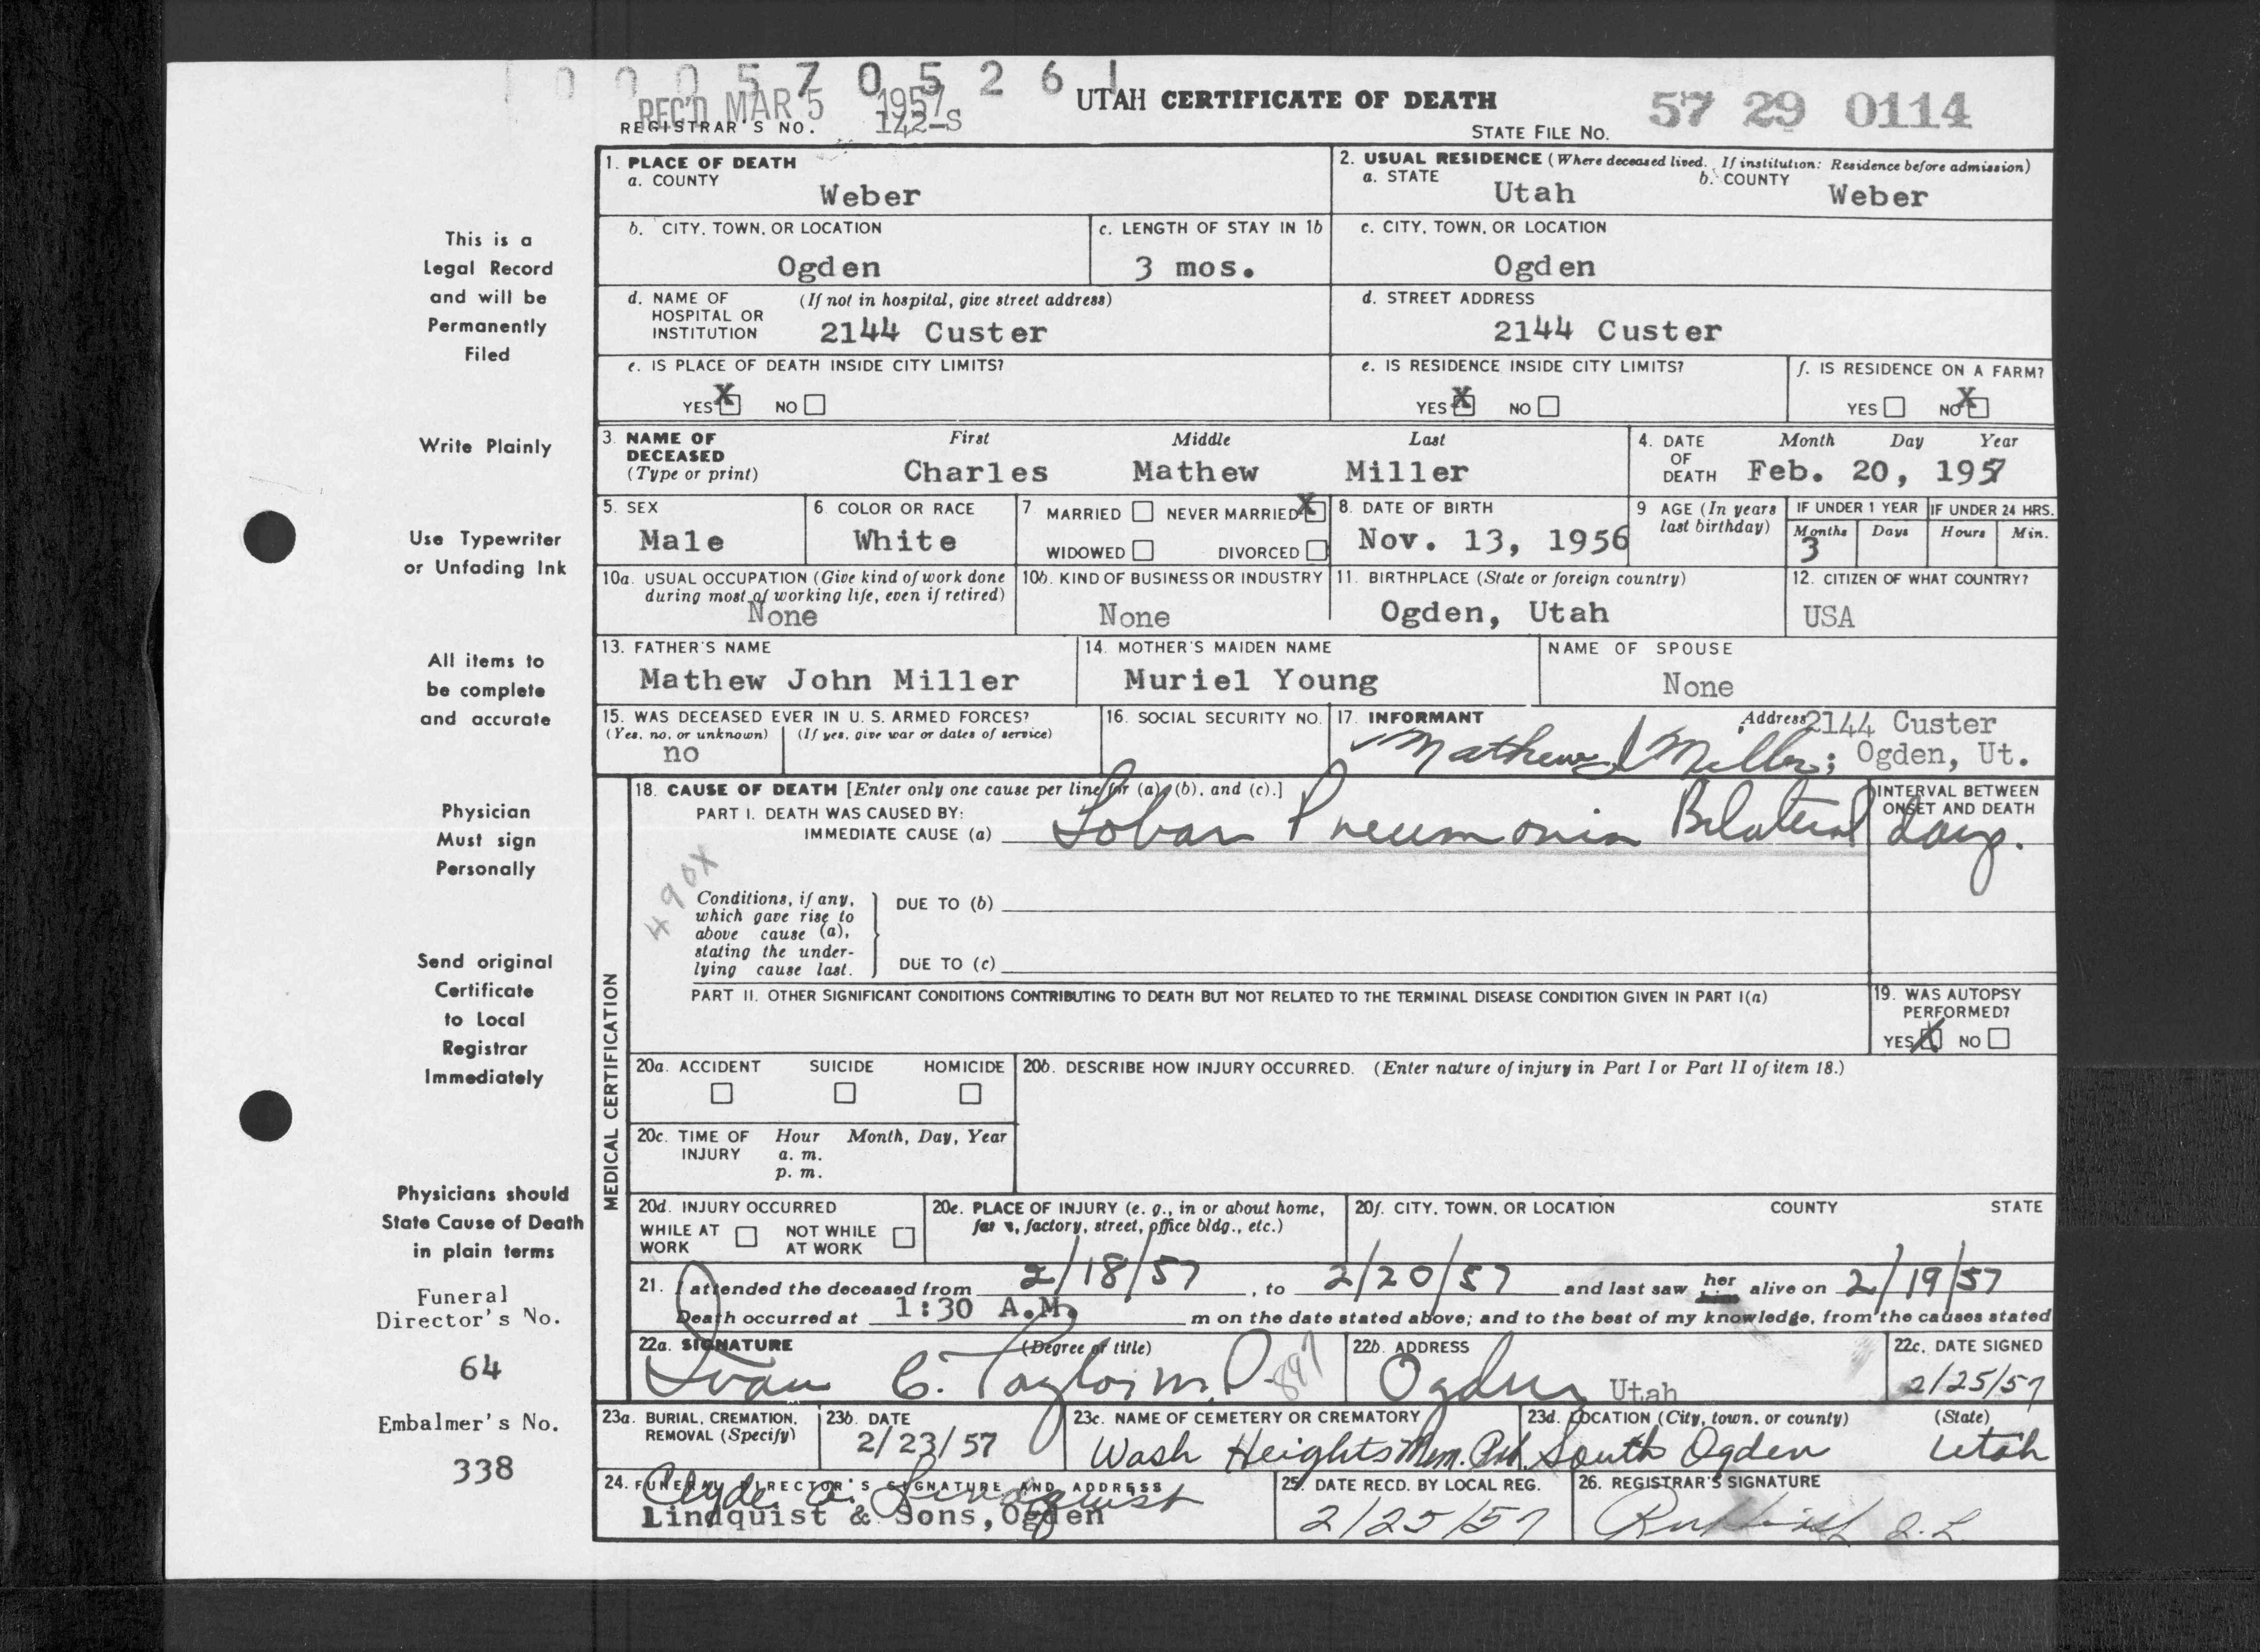 1 0 0 0 5 7 0 5 2 6 1
REC'D MAR 5 1957
UTAH CERTIFICATE OF DEATH
57 29 0114
REGISTRAR'S NO. 142-S
STATE FILE NO.
1. PLACE OF DEATH
a. COUNTY
Weber
2. USUAL RESIDENCE (Where deceased lived. If institution: Residence before admission)
a. STATE Utah b. COUNTY Weber
b. CITY, TOWN, OR LOCATION
Ogden
c. LENGTH OF STAY IN 1b
3 mos.
c. CITY, TOWN, OR LOCATION
Ogden
d. NAME OF HOSPITAL OR INSTITUTION (If not in hospital, give street address)
2144 Custer
d. STREET ADDRESS
2144 Custer
e. IS PLACE OF DEATH INSIDE CITY LIMITS?
YES X NO
e. IS RESIDENCE INSIDE CITY LIMITS?
YES X NO
f. IS RESIDENCE ON A FARM?
YES NO X
3. NAME OF DECEASED (Type or print)
First Middle Last
Charles Mathew Miller
4. DATE OF DEATH
Month Day Year
Feb. 20, 1957
5. SEX
Male
6. COLOR OR RACE
White
7. MARRIED NEVER MARRIED X
WIDOWED DIVORCED
8. DATE OF BIRTH
Nov. 13, 1956
9 AGE (In years last birthday)
IF UNDER 1 YEAR
Months Days
3
IF UNDER 24 HRS.
Hours Min.
10a. USUAL OCCUPATION (Give kind of work done during most of working life, even if retired)
None
10b. KIND OF BUSINESS OR INDUSTRY
None
11. BIRTHPLACE (State or foreign country)
Ogden, Utah
12. CITIZEN OF WHAT COUNTRY?
USA
13. FATHER'S NAME
Mathew John Miller
14. MOTHER'S MAIDEN NAME
Muriel Young
NAME OF SPOUSE
None
15. WAS DECEASED EVER IN U. S. ARMED FORCES?
(Yes, no, or unknown) (If yes, give war or dates of service)
no
16. SOCIAL SECURITY NO.
17. INFORMANT Address
Mathew J Miller; 2144 Custer
Ogden, Ut.
MEDICAL CERTIFICATION
18. CAUSE OF DEATH [Enter only one cause per line for (a), (b), and (c).]
PART I. DEATH WAS CAUSED BY:
IMMEDIATE CAUSE (a) Lobar Pneumonia Bilateral
INTERVAL BETWEEN ONSET AND DEATH
days.
490X
Conditions, if any,
which gave rise to
above cause (a),
stating the under-
lying cause last.
DUE TO (b)
DUE TO (c)
PART II. OTHER SIGNIFICANT CONDITIONS CONTRIBUTING TO DEATH BUT NOT RELATED TO THE TERMINAL DISEASE CONDITION GIVEN IN PART I(a)
19. WAS AUTOPSY PERFORMED?
YES X NO
20a. ACCIDENT SUICIDE HOMICIDE
20b. DESCRIBE HOW INJURY OCCURRED. (Enter nature of injury in Part I or Part II of item 18.)
20c. TIME OF INJURY Hour Month, Day, Year
a. m.
p. m.
20d. INJURY OCCURRED
WHILE AT WORK NOT WHILE AT WORK
20e. PLACE OF INJURY (e. g., in or about home, farm, factory, street, office bldg., etc.)
20f. CITY, TOWN, OR LOCATION COUNTY STATE
21. I attended the deceased from 2/18/57, to 2/20/57 and last saw her him alive on 2/19/57
Death occurred at 1:30 A.M. m on the date stated above; and to the best of my knowledge, from the causes stated
22a. SIGNATURE (Degree or title)
Ivan C. Taylor M.D. 847
22b. ADDRESS
Ogden Utah
22c. DATE SIGNED
2/25/57
23a. BURIAL, CREMATION, REMOVAL (Specify)
23b. DATE
2/23/57
23c. NAME OF CEMETERY OR CREMATORY
Wash Heights Mem. Prk.
23d. LOCATION (City, town, or county) (State)
South Ogden Utah
24. FUNERAL DIRECTOR'S SIGNATURE AND ADDRESS
Clyde Lindquist
Lindquist & Sons, Ogden
25. DATE RECD. BY LOCAL REG.
2/25/57
26. REGISTRAR'S SIGNATURE
This is a
Legal Record
and will be
Permanently
Filed
Write Plainly
Use Typewriter
or Unfading Ink
All items to
be complete
and accurate
Physician
Must sign
Personally
Send original
Certificate
to Local
Registrar
Immediately
Physicians should
State Cause of Death
in plain terms
Funeral
Director's No.
64
Embalmer's No.
338